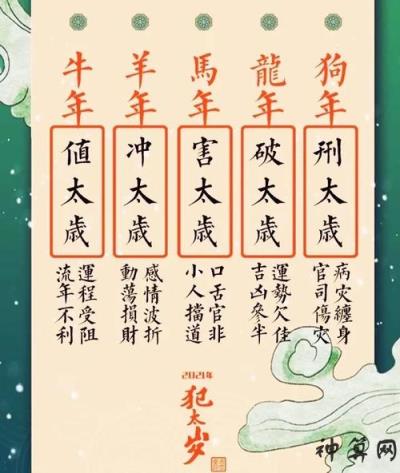 牛年
値太歳
運程受阻
流年不利
羊年
冲太歳
感情波折
動蕩損財
馬年
害太歳
口舌官非
小人擋道
龍年
破太歳
運勢欠佳
吉凶參半
狗年
刑太歳
病灾纏身
官司傷灾
2021年
犯太岁
神算网